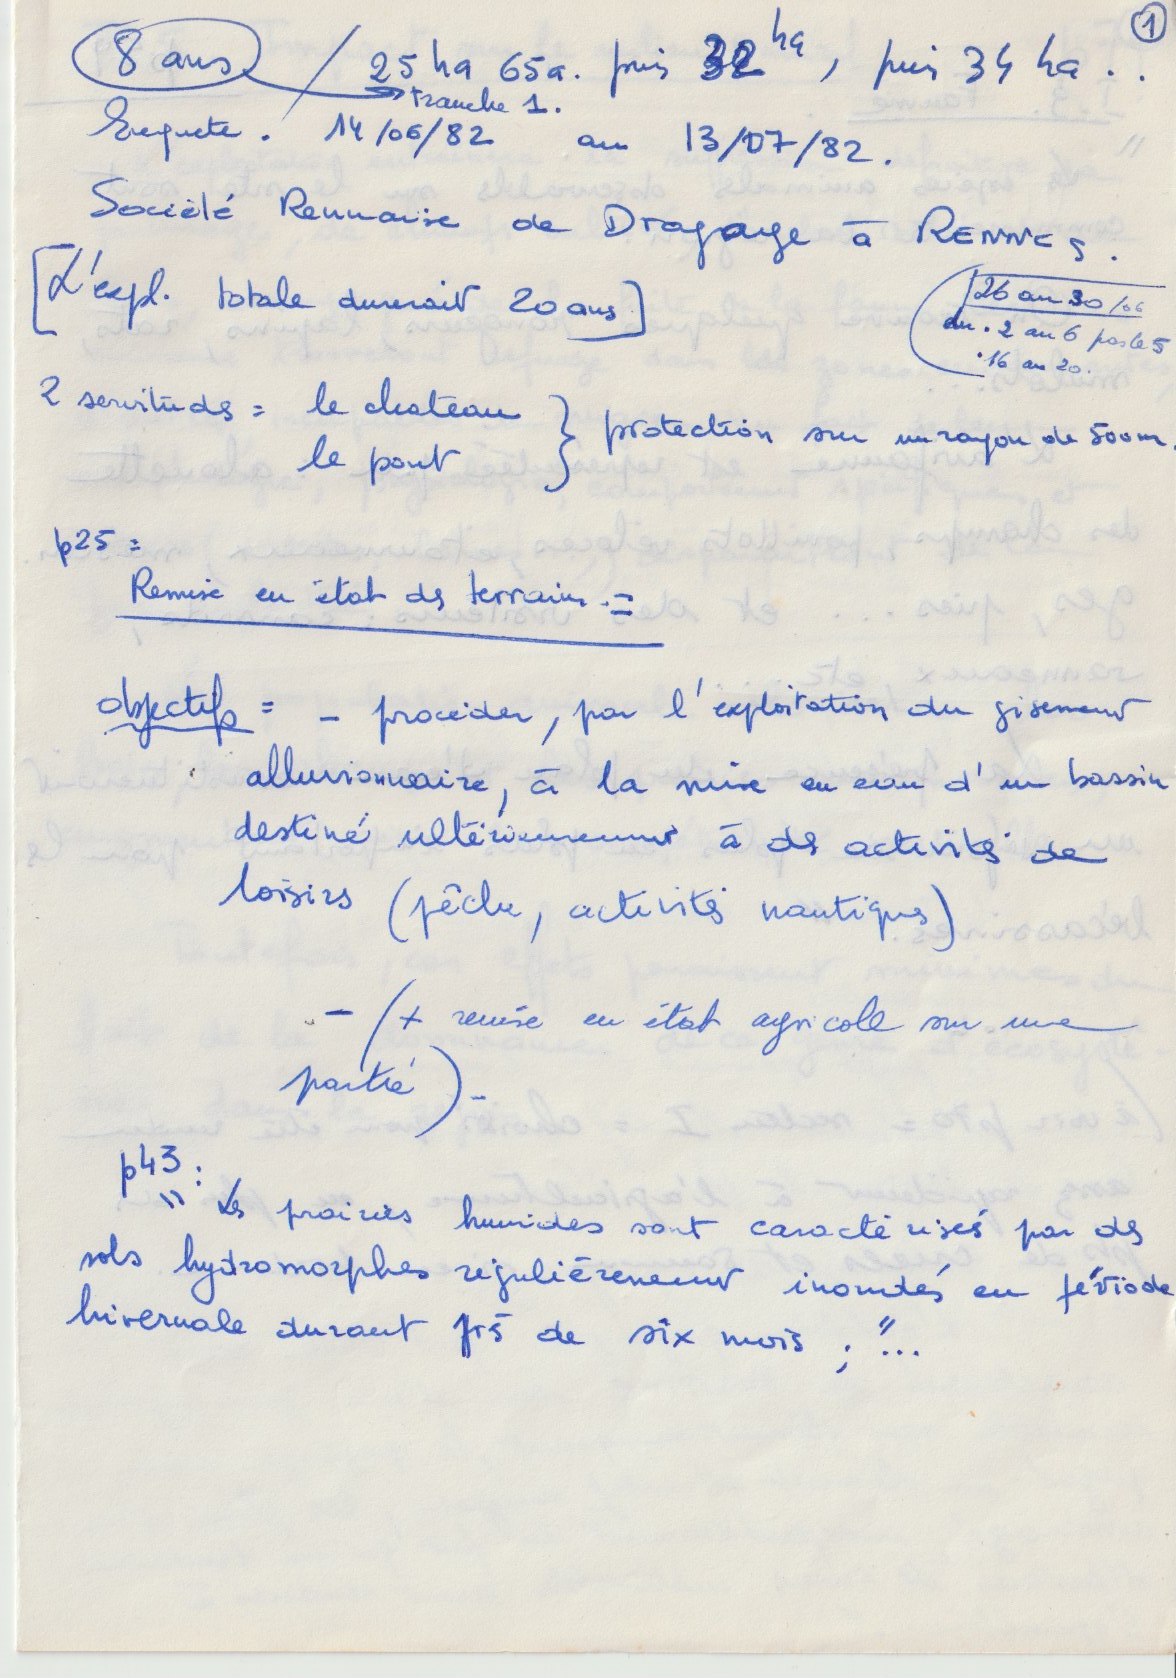 ①
8 ans / 25 ha 65a. puis 32 ha, puis 34 ha..
→ tranche 1.
Enquete. 14/06/82 au 13/07/82.
Société Rennaise de Dragage à RENNES.
[L'expl. totale durerait 20 ans]
26 au 30/06
du . 2 au 6 pas le 5
. 16 au 20.
2 servitudes = le chateau
le pont } protection sur un rayon de 500m.
p25 =
Remise en état des terrains. =
objectifs = - proceder, par l'exploitation du gisement
alluvionnaire, à la mise en eau d'un bassin
destiné ultérieurement à des activités de
loisirs (pêche, activités nautiques)
- (+ remise en état agricole sur une
partie) -
p43 :
" Les prairies humides sont caractérisés par des
sols hydromorphes régulièrement inondés en période
hivernale durant près de six mois ; "...